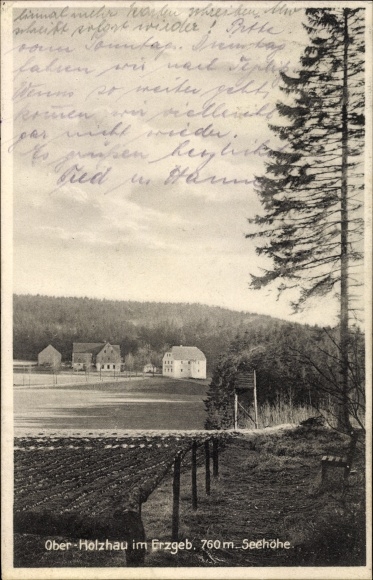 einmal mehr Karten schreiben. Wer
schreibt sofort wieder! Bitte
vom Sonntag. Dienstag
fahren wir nach Teplitz
Wenns so weiter geht,
kommen wir vielleicht
gar nicht wieder.
Es grüßen herzlichst
Fred u. Hanna
Ober-Holzhau im Erzgeb. 760 m. Seehöhe.